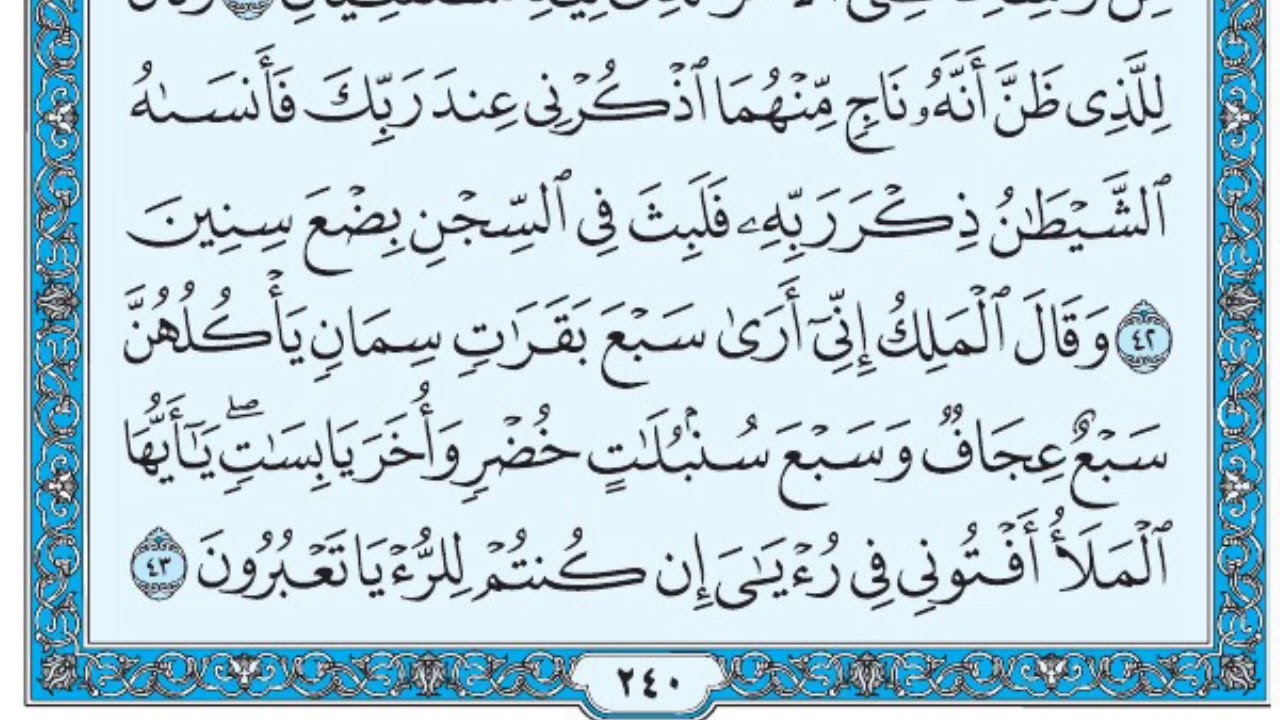 لِلَّذِى ظَنَّ أَنَّهُۥ نَاجٍ مِّنْهُمَا ٱذْكُرْنِى عِندَ رَبِّكَ فَأَنسَىٰهُ
ٱلشَّيْطَٰنُ ذِكْرَ رَبِّهِۦ فَلَبِثَ فِى ٱلسِّجْنِ بِضْعَ سِنِينَ
٤٢ وَقَالَ ٱلْمَلِكُ إِنِّىٓ أَرَىٰ سَبْعَ بَقَرَٰتٍ سِمَانٍ يَأْكُلُهُنَّ
سَبْعٌ عِجَافٌ وَسَبْعَ سُنۢبُلَٰتٍ خُضْرٍ وَأُخَرَ يَابِسَٰتٍ ۖ يَٰٓأَيُّهَا
ٱلْمَلَأُ أَفْتُونِى فِى رُءْيَٰىَ إِن كُنتُمْ لِلرُّءْيَا تَعْبُرُونَ ٤٣
٢٤٠